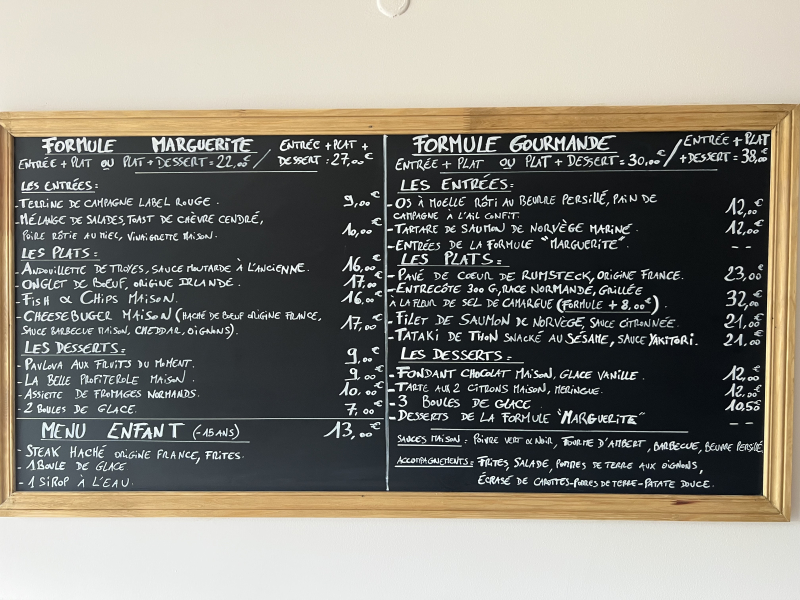 FORMULE MARGUERITE / ENTRÉE + PLAT +
ENTRÉE + PLAT OU PLAT + DESSERT = 22,00€ / DESSERT : 27,00€
LES ENTRÉES :
- TERRINE DE CAMPAGNE LABEL ROUGE . 9,00€
- MÉLANGE DE SALADES, TOAST DE CHÈVRE CENDRÉ,
POIRE RÔTIE AU MIEL, VINAIGRETTE MAISON. 10,00€
LES PLATS :
- ANDOUILLETTE DE TROYES, SAUCE MOUTARDE À L'ANCIENNE. 16,00€
- ONGLET DE BŒUF, ORIGINE IRLANDE. 17,00€
- FISH & CHIPS MAISON. 16,00€
- CHEESEBUGER MAISON (HACHÉ DE BŒUF ORIGINE FRANCE,
SAUCE BARBECUE MAISON, CHEDDAR, OIGNONS). 17,00€
LES DESSERTS :
- PAVLOVA AUX FRUITS DU MOMENT. 9,00€
- LA BELLE PROFITEROLE MAISON . 9,00€
- ASSIETTE DE FROMAGES NORMANDS. 10,00€
- 2 BOULES DE GLACE. 7,00€
MENU ENFANT (-15 ANS) 13,00€
- STEAK HACHÉ ORIGINE FRANCE, FRITES.
- 1 BOULE DE GLACE
- 1 SIROP À L'EAU.
FORMULE GOURMANDE / ENTRÉE + PLAT
ENTRÉE + PLAT OU PLAT + DESSERT = 30,00€ / + DESSERT = 38,00€
LES ENTRÉES :
- OS À MOELLE RÔTI AU BEURRE PERSILLÉ, PAIN DE
CAMPAGNE À L'AIL CONFIT. 12,00€
- TARTARE DE SAUMON DE NORVÈGE MARINÉ. 12,00€
- ENTRÉES DE LA FORMULE "MARGUERITE". --
LES PLATS :
- PAVÉ DE CŒUR DE RUMSTECK, ORIGINE FRANCE. 23,00€
- ENTRECÔTE 300 G, RACE NORMANDE, GRILLÉE
À LA FLEUR DE SEL DE CAMARGUE (FORMULE + 8,00€). 32,00€
- FILET DE SAUMON DE NORVÈGE, SAUCE CITRONNÉE. 21,00€
- TATAKI DE THON SNACKÉ AU SÉSAME, SAUCE YAKITORI. 21,00€
LES DESSERTS :
- FONDANT CHOCOLAT MAISON, GLACE VANILLE. 12,00€
- TARTE AUX 2 CITRONS MAISON, MERINGUE. 12,00€
- 3 BOULES DE GLACE . 10,50€
- DESSERTS DE LA FORMULE "MARGUERITE" --
SAUCES MAISON : POIVRE VERT & NOIR, FOURME D'AMBERT, BARBECUE, BEURRE PERSILLÉ
ACCOMPAGNEMENTS : FRITES, SALADE, POMMES DE TERRE AUX OIGNONS,
ÉCRASÉ DE CAROTTES-POMMES DE TERRE-PATATE DOUCE.